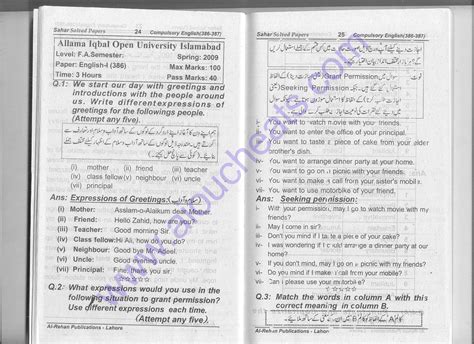 Sahar Solved Papers 24 Compulsory English(386-387)
Allama Iqbal Open University Islamabad
Level: F.A.Semester: Spring: 2009
Paper: English-I (386) Max Marks: 100
Time: 3 Hours Pass Marks: 40
Q.1: We start our day with greetings and
introductions with the people around
us. Write different expressions of
greetings for the followings people.
(Attempt any five).
(i) mother (ii) friend (iii) teacher
(iv) class fellow (v) neighbour (vi) uncle
(vii) principal
Ans: Expressions of Greetings:
(i) Mother: Asslam-o-Alaikum dear Mother.
(ii) Friend: Hello Zahid, how are you?
(iii) Teacher: Good Morning Sir.
(iv) Class fellow: Hi Ali, how do you do?
(v) Neighbour: Good bye Mr. Naveed.
(vi) Uncle: Good Evening Uncle.
(vii) Principal: Good day sir.
Q.2: What expressions would you use in the
following situation to grant permission?
Use different expressions each time.
(Attempt any five)
Al-Rehan Publications - Lahore
Sahar Solved Papers 25 Compulsory English(386-387)
Grant Permission
Seeking Permission
You want to watch movie with your friend.
You want to enter the office of your principal.
You want to taste a piece of cake from your older
brother's dish.
You want to arrange dinner party at your home.
v- You want to go on picnic.
vi- You want to make a call from your sister's mobile.
vii- You want to use motorbike of your friend.
Ans: Seeking permission:
i- With your permission, may I go to watch movie with my
friends?
ii- May I come in sir?
iii- Don't you mind if I taste a piece of your cake?
iv- I was wondering if I could arrange a dinner party at your
home?
v- If you don't mind, may I go on picnic?
vi- Do you mind if I make a call from your mobile?
vii- Can I use your motorbike?
Q.3: Match the words in column A with this
correct meaning in column B.
Al-Rehan Publications - Lahor
www.aioucheats.com